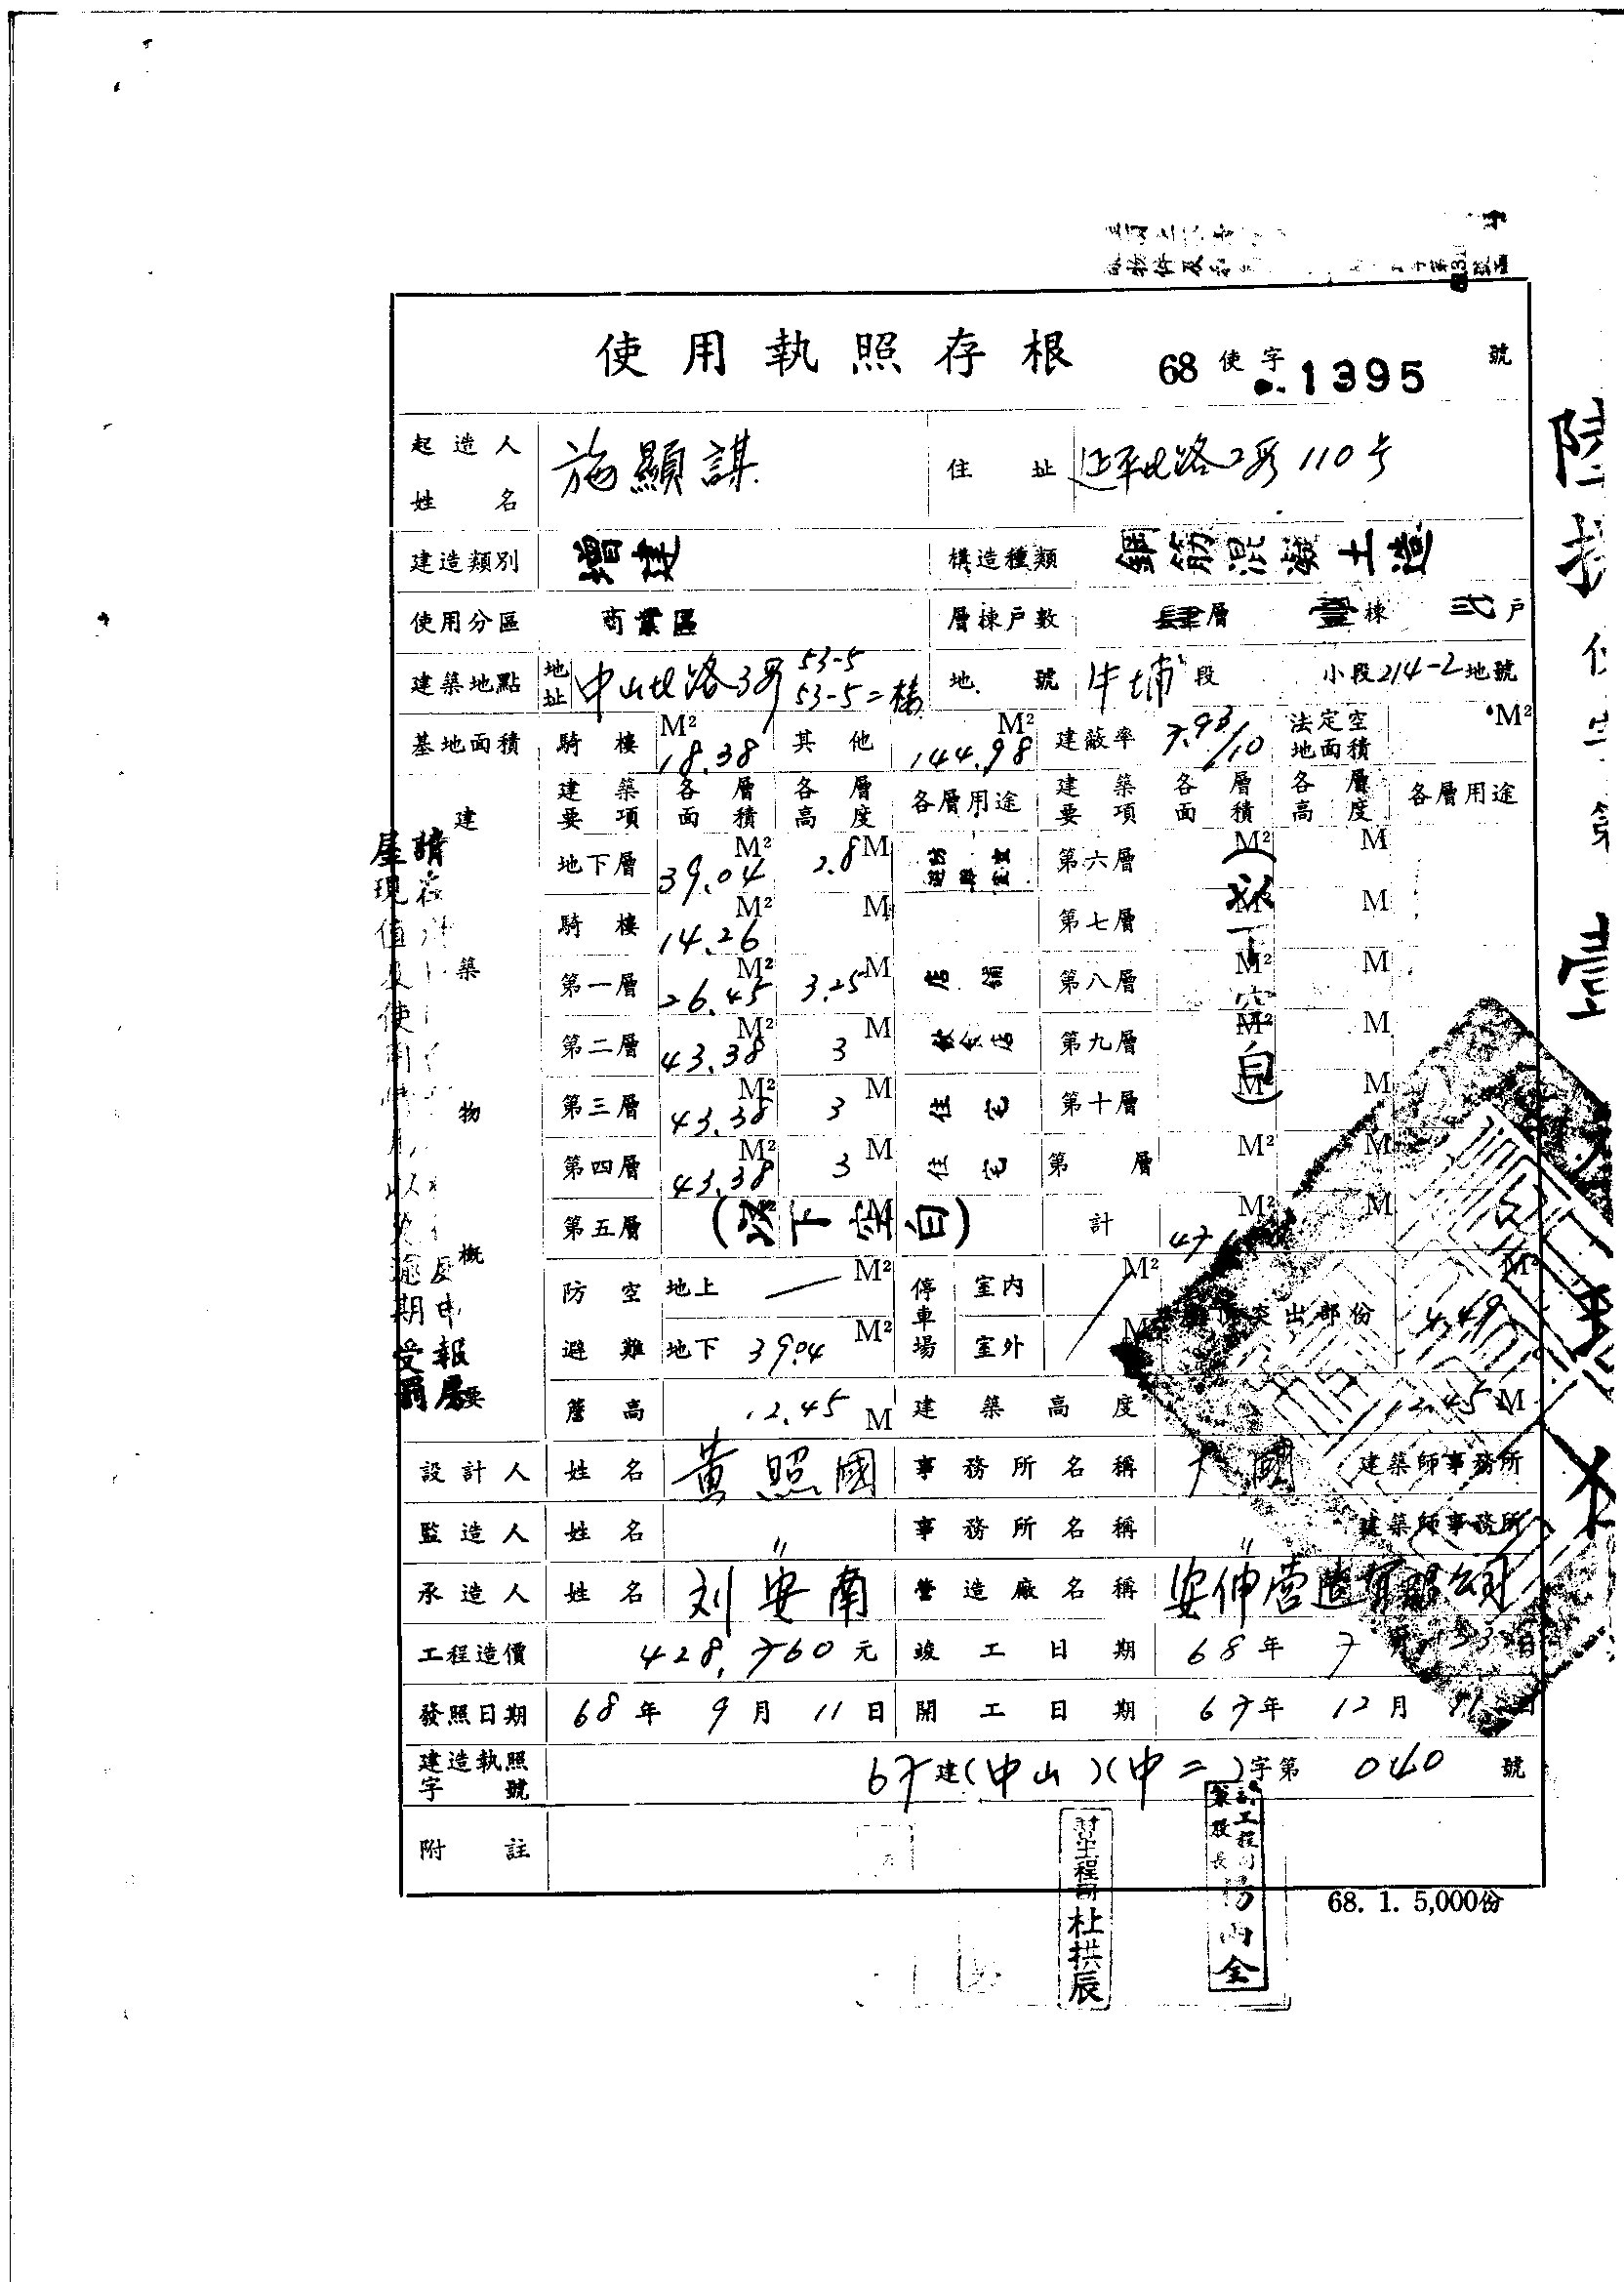 使用執照存根 68使字 1395 號
起造人姓名 施顯謀 住址 延平北路2段110号
建造類別 增建 構造種類 鋼筋混凝土造
使用分區 商業區 層棟戶數 肆層 壹棟 弍戶
建築地點 地址 中山北路3段 53-5 53-5二樓 地號 牛埔段 小段214-2地號
基地面積 騎樓 18.38 M² 其他 144.98 M² 建蔽率 7.93/10 法定空地面積 M²
建築要項 各層面積 各層高度 各層用途 建築要項 各層面積 各層高度 各層用途
建築物概要
地下層 39.04 M² 2.8 M 第六層 M² M
騎樓 14.26 M² M 第七層 M² M
第一層 26.45 M² 3.25 M 店舖 第八層 M² M
第二層 43.38 M² 3 M 飲食店 第九層 M² M
第三層 43.38 M² 3 M 住宅 第十層 M² M
第四層 43.38 M² 3 M 住宅 第 層 M² M
(以下空白)
第五層 (以下空白) 計 M² M
防空避難 地上 — M² 停車場 室內 M² 突出部份 4.49 M²
地下 39.04 M² 室外 M²
簷高 12.45 M 建築高度 12.45 M
設計人 姓名 黃照國 事務所名稱 國 建築師事務所
監造人 姓名 〃 事務所名稱 〃 建築師事務所
承造人 姓名 刘安南 營造廠名稱 安伸营造有限公司
工程造價 428,760元 竣工日期 68年 7月 日
發照日期 68年 9月 11日 開工日期 67年 12月 日
建造執照字號 67建(中山)(中二)字第 040 號
附註
68. 1. 5,000份
杜拱辰